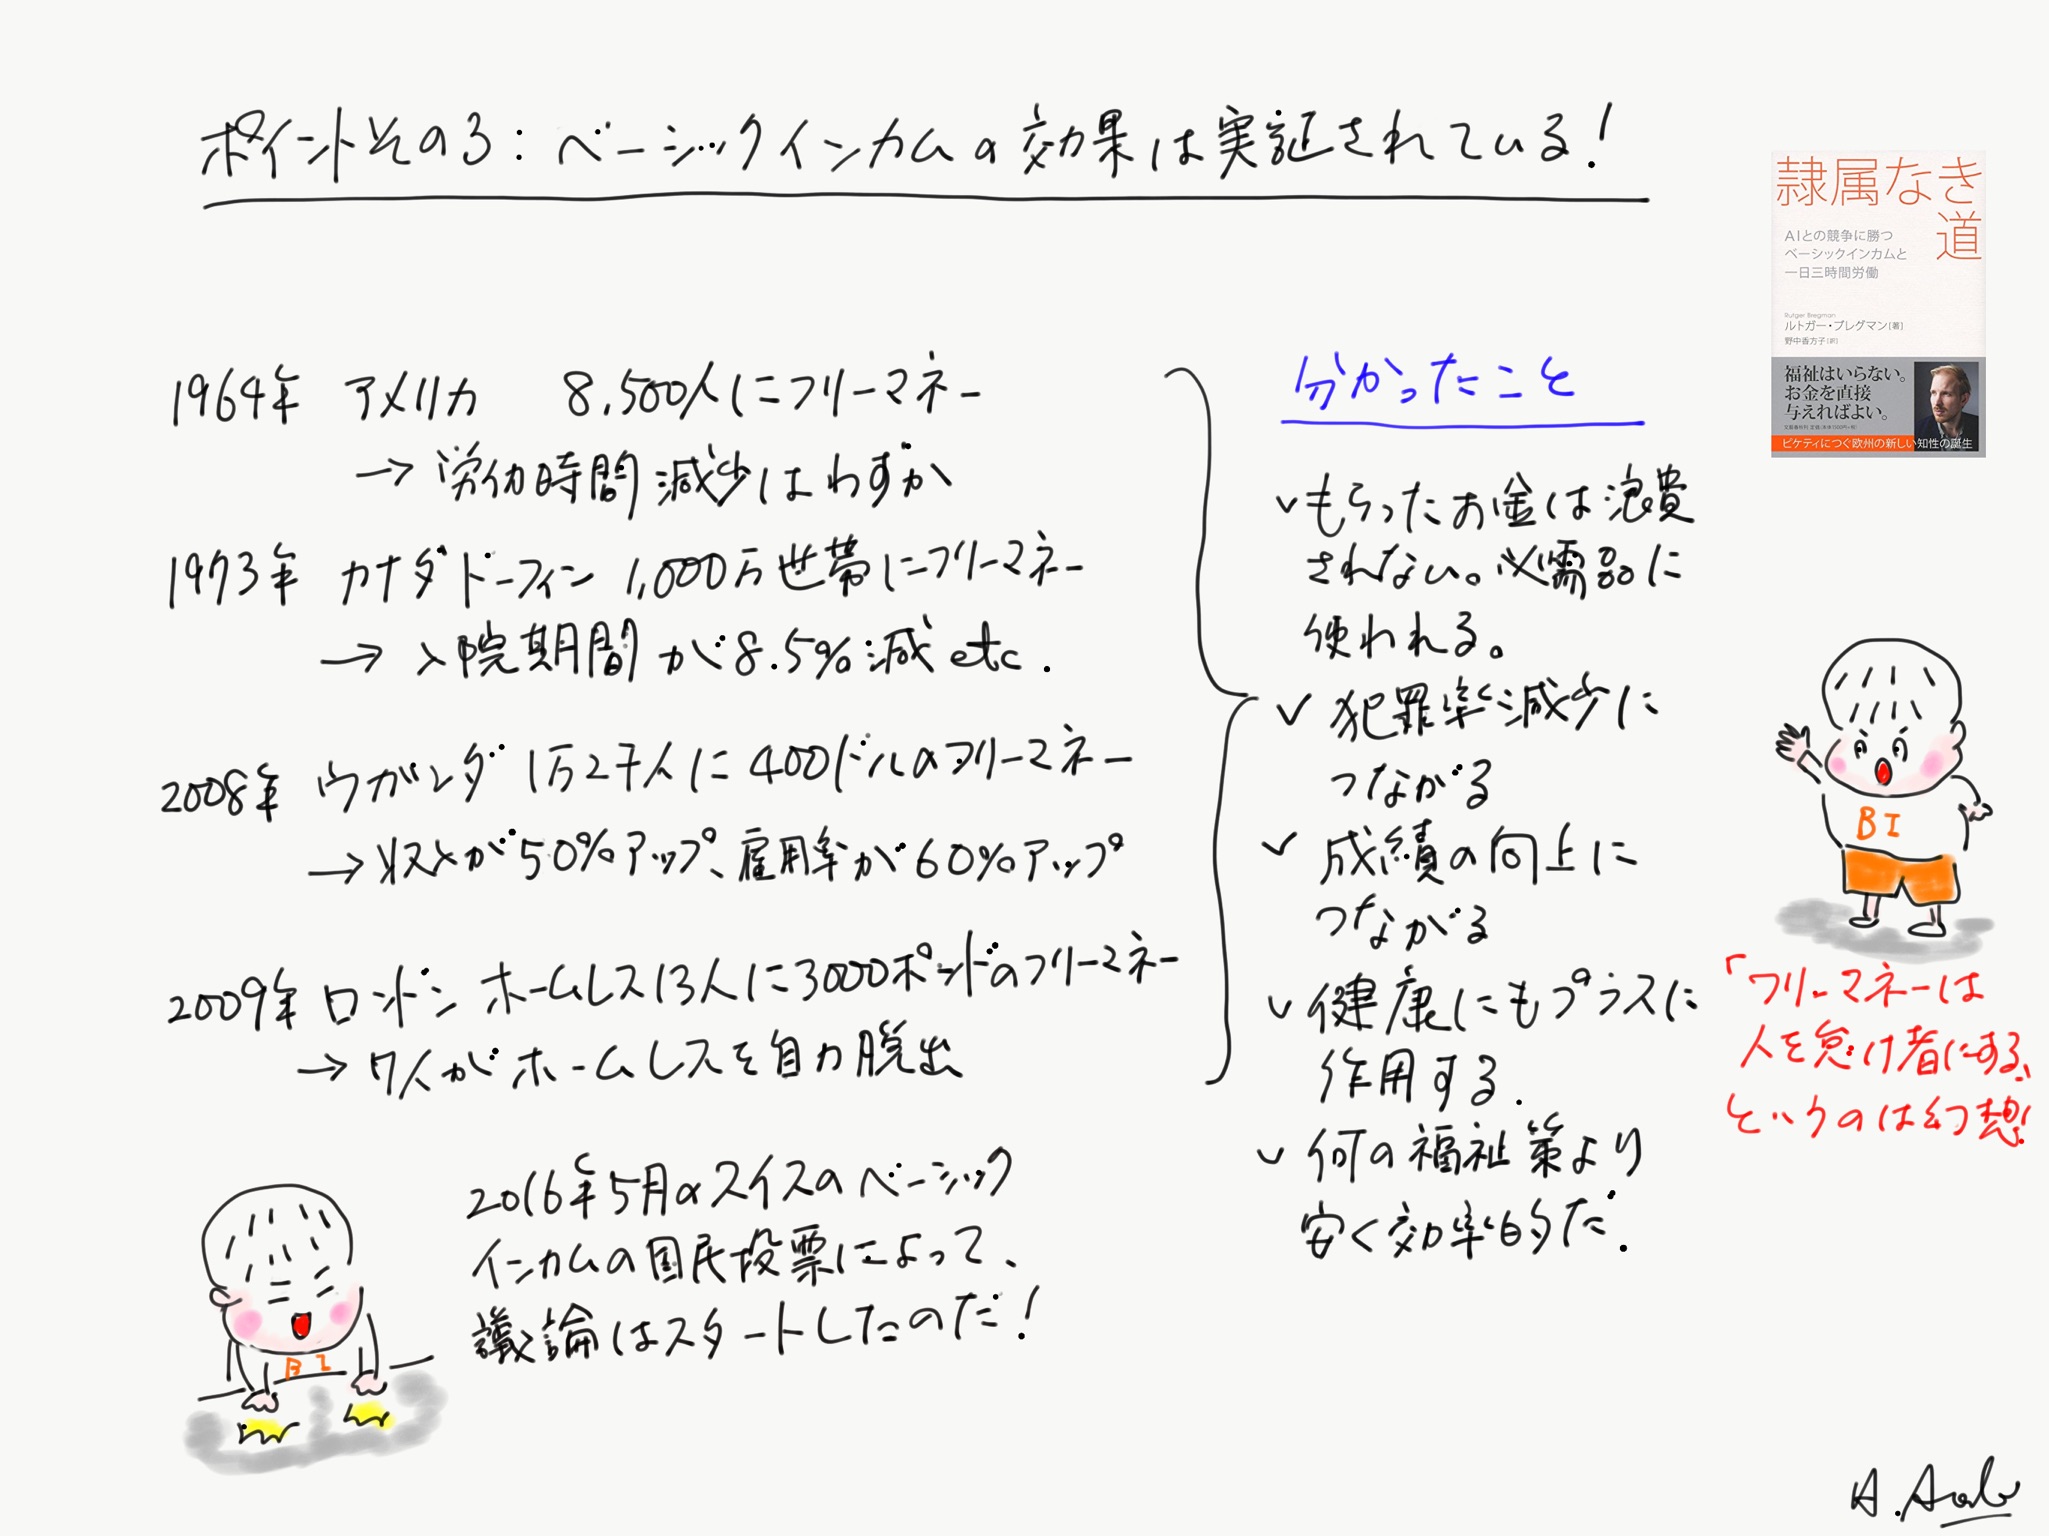 ポイントその3：ベーシックインカムの効果は実証されている！
隷属なき
道
AIとの競争に勝つ
ベーシックインカムと
一日三時間労働
Rutger Bregman
ルトガー・ブレグマン[著]
野中香方子[訳]
福祉はいらない。
お金を直接
与えればよい。
ピケティにつぐ欧州の新しい知性の誕生
1964年 アメリカ 8,500人にフリーマネー
→ 労働時間減少はわずか
1973年 カナダドーフィン 1,000万世帯にフリーマネー
→ 入院期間が8.5%減 etc.
2008年 ウガンダ 1万2千人に400ドルのフリーマネー
→ 収入が50%アップ、雇用率が60%アップ
2009年 ロンドン ホームレス13人に3000ポンドのフリーマネー
→ 7人がホームレスを自力脱出
2016年5月のスイスのベーシック
インカムの国民投票によって、
議論はスタートしたのだ！
分かったこと
✓もらったお金は浪費
されない。必需品に
使われる。
✓ 犯罪率減少に
つながる
✓ 成績の向上に
つながる
✓ 健康にもプラスに
作用する.
✓ 何の福祉策より
安く効率的だ.
BI
「フリーマネーは
人を怠け者にする」
というのは幻想！
BI